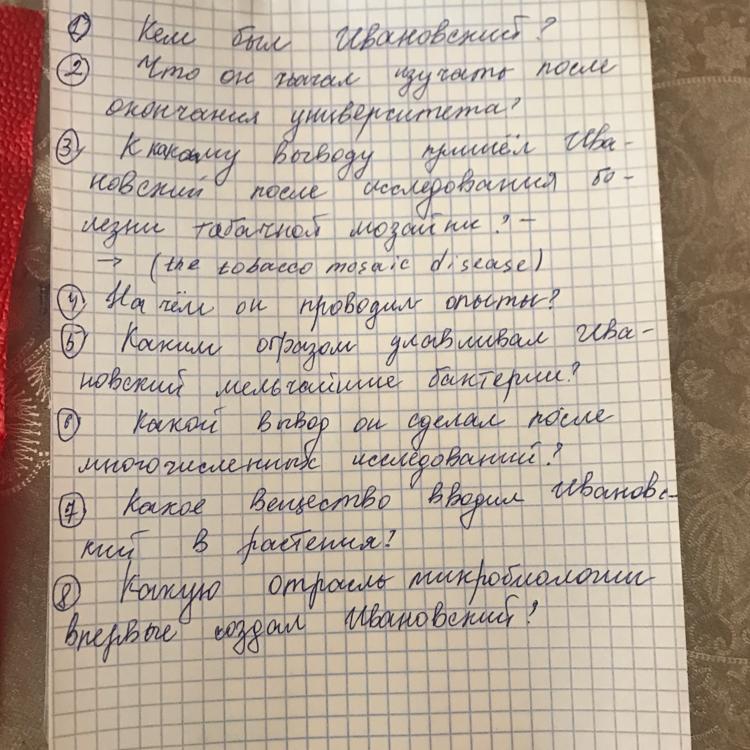 1 Кем был Ивановский?
2 Что он начал изучать после
окончания университета?
3 К какому выводу пришёл Ива-
новский после исследования бо-
лезни табачной мозаики? –
→ (the tobacco mosaic disease)
4 На чём он проводил опыты?
5 Каким образом улавливал Ива-
новский мельчайшие бактерии?
6 Какой вывод он сделал после
многочисленных исследований?
7 Какое вещество вводил Ивановс-
кий в растения?
8 Какую отрасль микробиологии
впервые создал Ивановский?